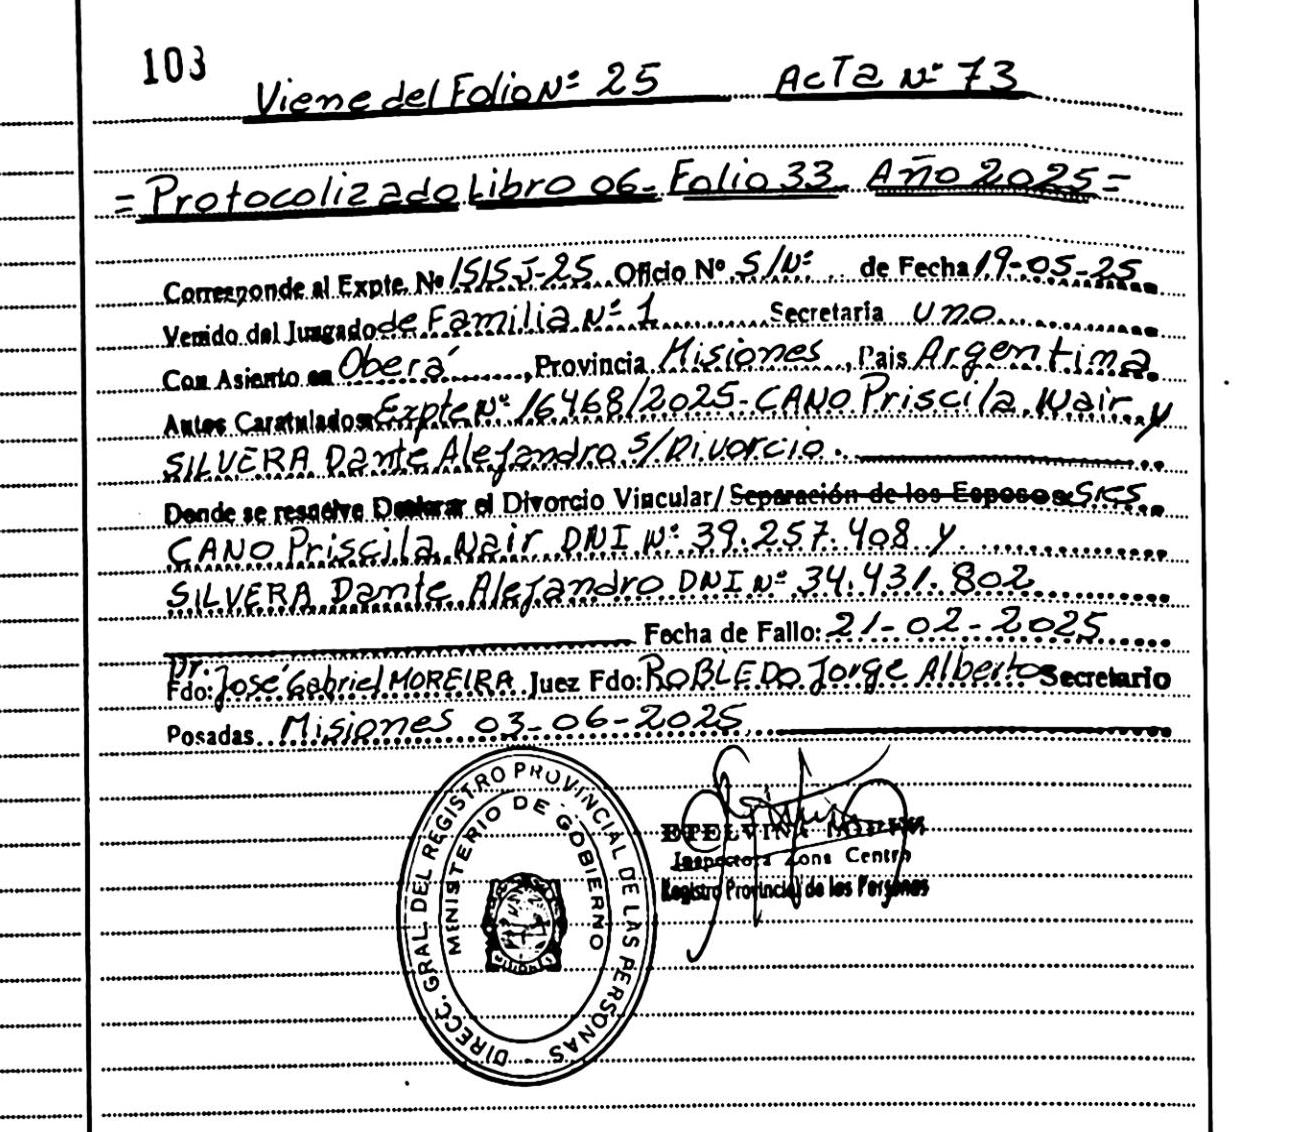 103
Viene del Folio Nº 25 Acta Nº 73
= Protocolizado Libro 06- Folio 33 Año 2025 =
Corresponde al Expte. Nº 1515J-25 Oficio Nº S/Nº de Fecha 19-05-25
Venido del Juzgado de Familia Nº 1 Secretaria uno
Con Asiento en Oberá, Provincia Misiones, Pais Argentina
Autos Caratulados Expte Nº 16468/2025- CANO Priscila Nair y
SILVERA Dante Alejandro S/Divorcio.
Donde se resuelve Declarar el Divorcio Vincular/ Separación de los Esposos Sres
CANO Priscila Nair DNI Nº 39.257.408 y
SILVERA Dante Alejandro DNI Nº 34.431.802
Fecha de Fallo: 21-02-2025
Fdo: Dr. José Gabriel MOREIRA Juez Fdo: ROBLEDO Jorge Alberto Secretario
Posadas Misiones 03-06-2025
DIRECC. GRAL. DEL REGISTRO PROVINCIAL DE LAS PERSONAS
MINISTERIO DE GOBIERNO
ETELVINA
Inspectora Zona Centro
Registro Provincial de las Personas